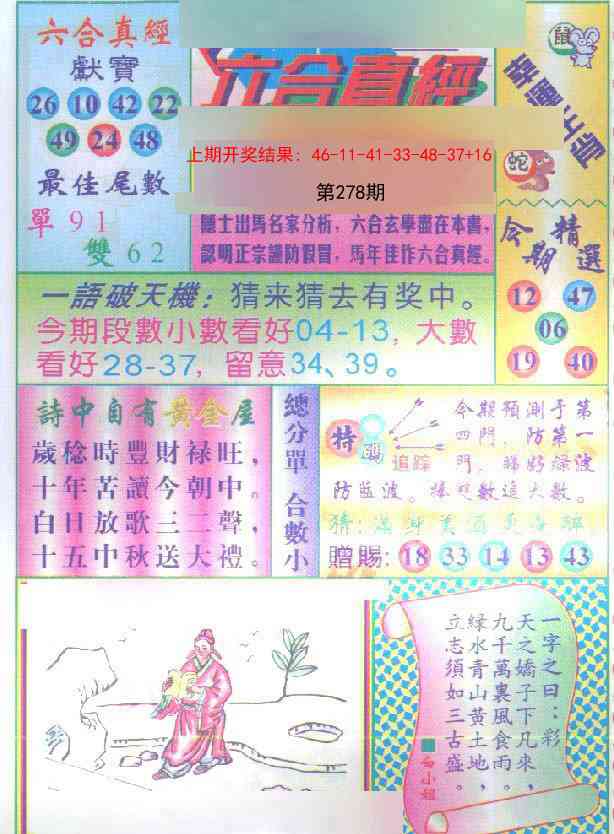 六合真經
獻寶
26 10 42 22
49 24 48
最佳尾數
單 9 1
雙 6 2
六合真經
上期开奖结果: 46-11-41-33-48-37+16
第278期
隱士出馬名家分析,六合玄學盡在本書,
認明正宗謹防假冒,馬年佳作六合真經。
鼠
蛇
今期精選
12 47
06
19 40
一語破天機:猜来猜去有奖中。
今期段數小數看好04-13,大數
看好28-37,留意34、39。
詩中自有黃金屋
歲稔時豐財禄旺,
十年苦讀今朝中。
白日放歌三二聲,
十五中秋送大禮。
總分單 合數小
特碼
追踪
今期預測于第
四門,防第一
門,睇好绿波
防蓝波。捧双數追大數。
猜:滿身美酒
贈賜: 18 33 14 13 43
一字之曰:彩
天之嬌子下凡來,
九千萬裏風食雨,
緑水青山黃土地,
立志須如三古盛。
白小姐